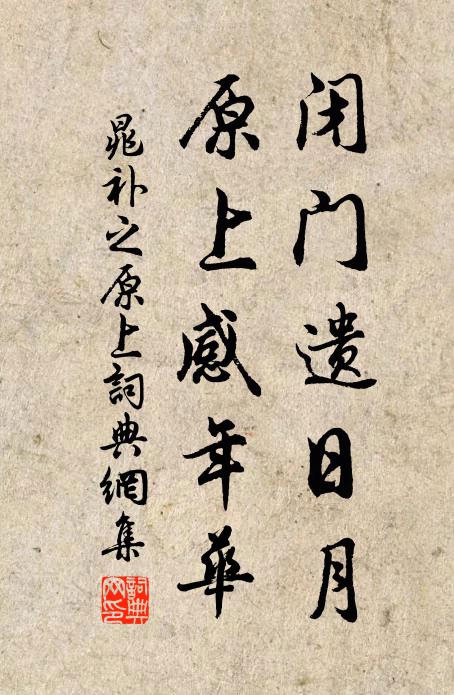 闭门遗日月
原上感年華
晁补之原上詞典網集
詞典网印